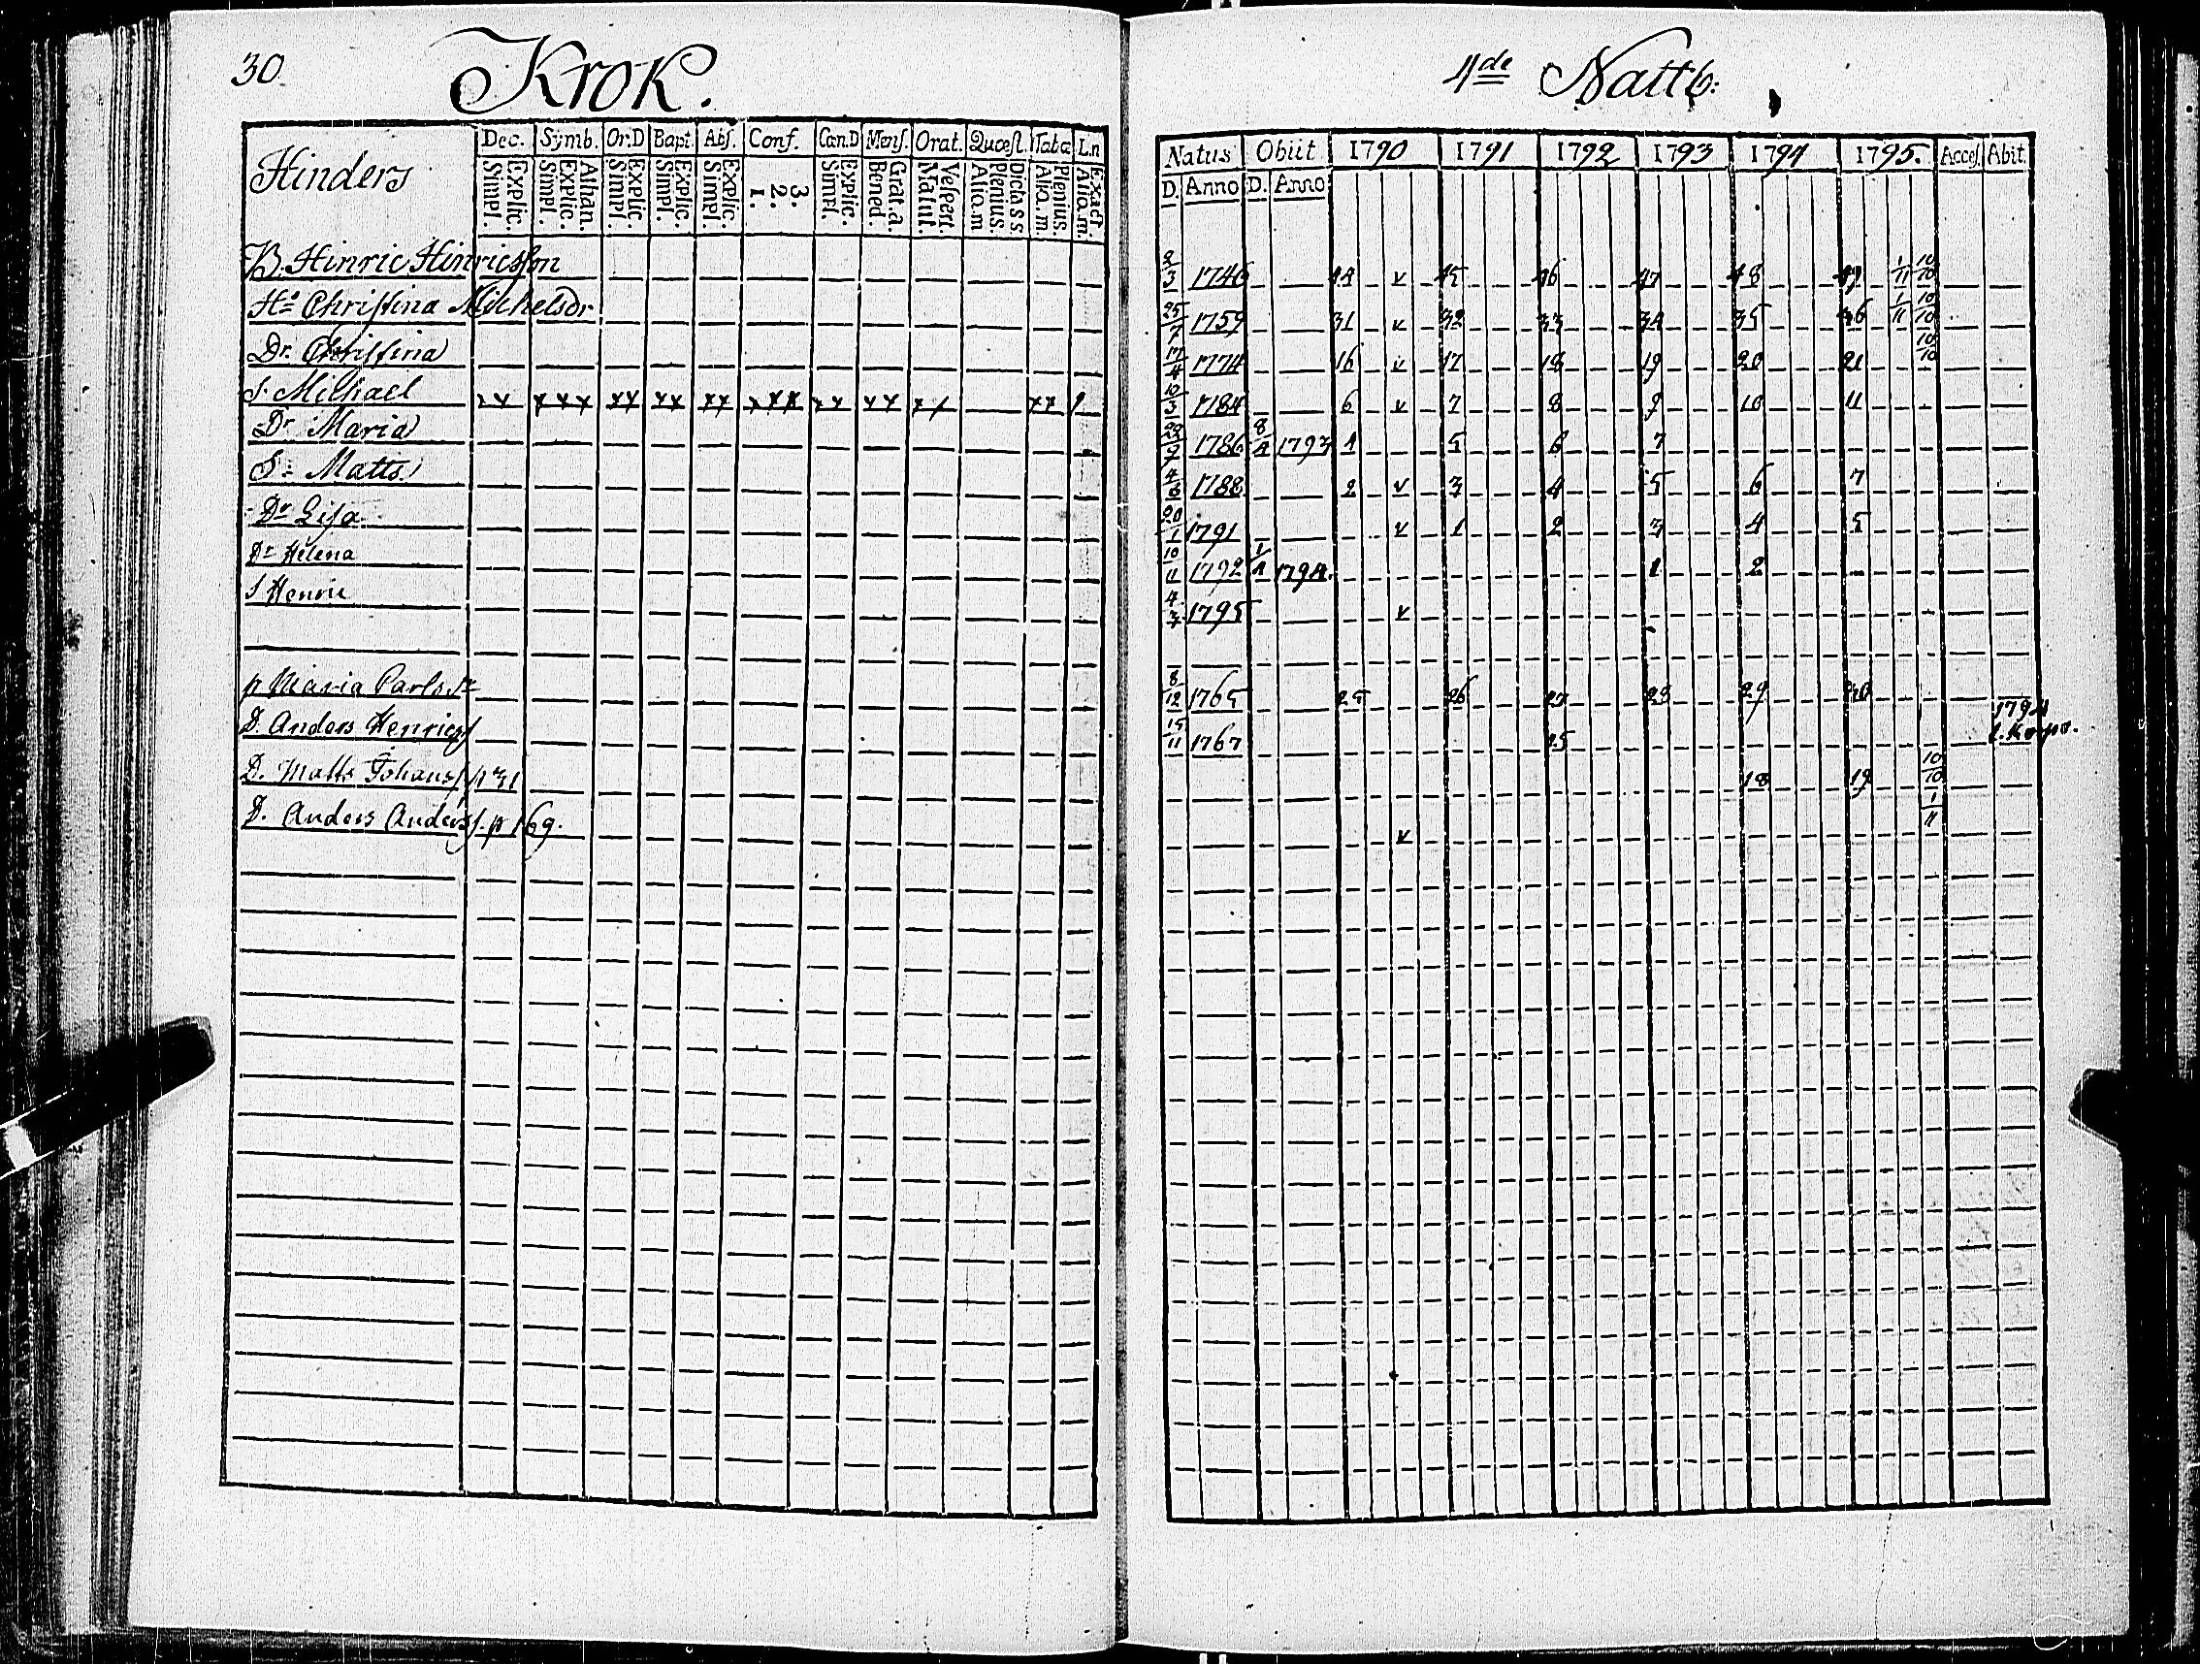 30.
Krok.
4de Nattb:
Hinders
Dec. Symb. Or.D Bapt. Abs. Conf. Can.D Mens. Orat. Quæst. Tabæ L.n
Explic. Simpl. Athan. Explic. Simpl. Explic Simpl. Explic. Simpl. Explic. Simpl. 3. 2. 1. Explic. Simpl. Grat.a. Bened. Vespert. Matut. Dictis S S Plenius. Aliq.m Plenius. Aliq.m. Exact. Aliq.m.
Natus Obiit 1790 1791 1792 1793 1794 1795. Acces. Abit.
D. Anno D. Anno
B. Hinric Hinricsson 2/3 1746 44 v 45 46 47 48 49 1/11 10/10
Ho Christina Michelsdr 25/7 1759 31 v 32 33 34 35 36 1/11 10/10
Dr. Christina 17/4 1774 16 v 17 18 19 20 21 10/10
S. Michael x x x x x x x x x x x x x x x x x x x x x x 10/3 1784 6 v 7 8 9 10 11
Dr Maria 29/9 1786 8/4 1793 4 5 6 7
S: Matts 4/6 1788 2 v 3 4 5 6 7
Dr Lisa 20/1 1791 v 1 2 3 4 5
Dr Helena 10/11 1792 1/4 1794. 1 2
S Henric 4/7 1795 v
p Maria Carlsdr 8/12 1765 25 26 27 28 29 30
D. Anders Henricss 15/11 1767 25 1794 t. Korpo.
D. Matts Johanss p 31 18 19 10/10
D. Anders Anderss. p 169. v 1/11